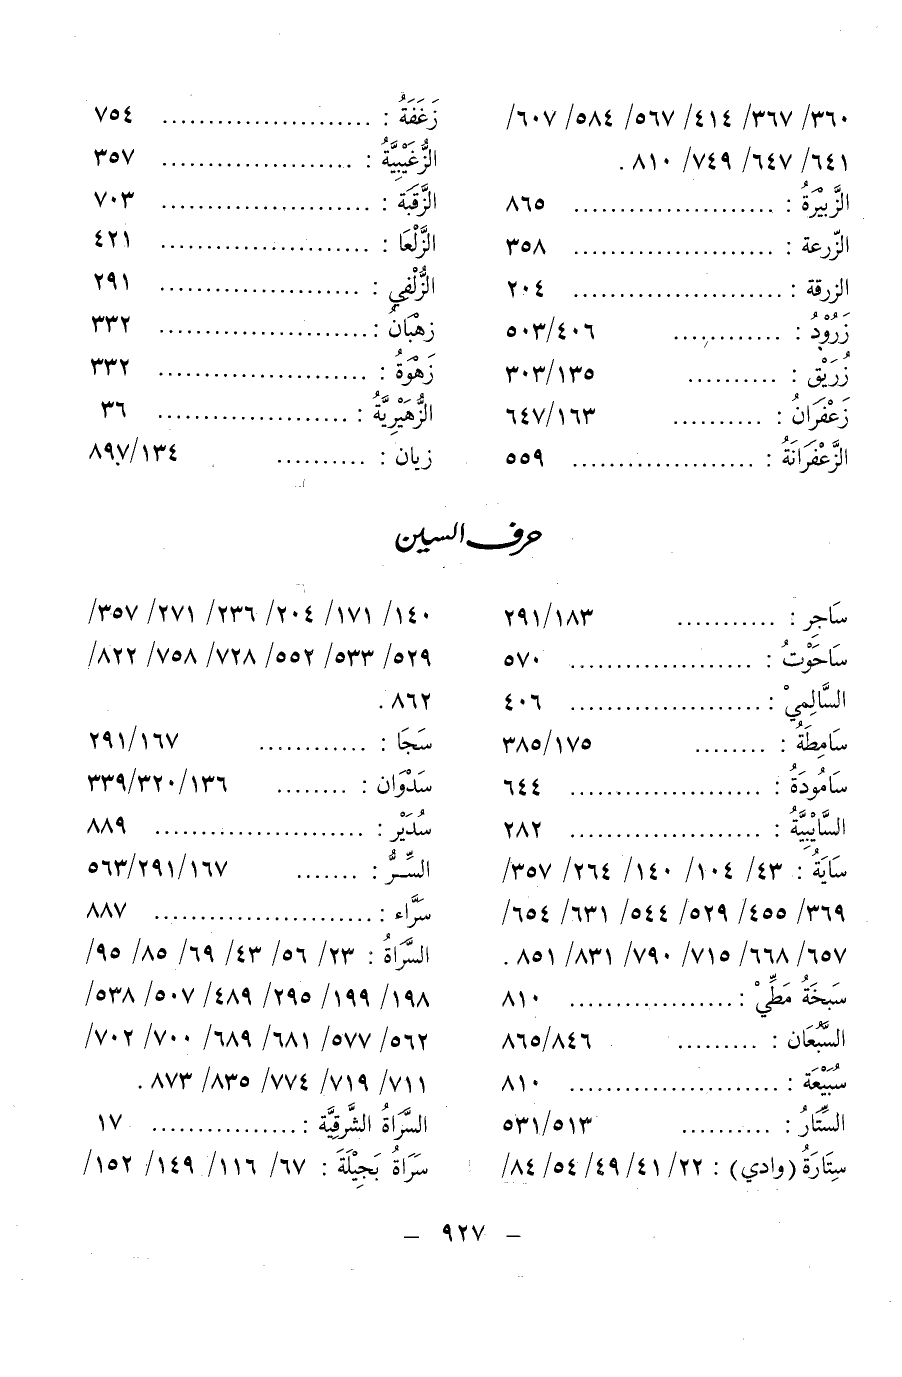 ٣٦٠/ ٣٦٧/ ٤١٤/ ٥٦٧/ ٥٨٤/ ٦٠٧/
٦٤١/ ٦٤٧/ ٧٤٩/ ٨١٠ .
الزَّبِيْرَةُ : ...................... ٨٦٥
الزّرعة : ...................... ٣٥٨
الزرقة : ....................... ٢٠٤
زَرُوْدُ : ............ ٥٠٣/٤٠٦
زُرَيْق : .......... ٣٠٣/١٣٥
زَعْفَرَانُ : .......... ٦٤٧/١٦٣
الزَّعْفَرَانَةُ : .................... ٥٥٩
زَغَفَةُ : ....................... ٧٥٤
الزُّغَيْبِيَّةُ : ..................... ٣٥٧
الزَّقَبَة : ....................... ٧٠٣
الزَّلْعَا : ....................... ٤٢١
الزُّلْفِي : ...................... ٢٩١
زهْبَانُ : ....................... ٣٣٢
زَهْوَةُ : ....................... ٣٣٢
الزُّهَيْرِيَّةُ : ..................... ٣٦
زيان : .......... ٨٩٧/١٣٤
حرف السين
سَاجِر : ........... ٢٩١/١٨٣
سَاحَوْتُ : .................... ٥٧٠
السَّالِمِيْ : ..................... ٤٠٦
سَامِطَةُ : ........ ٣٨٥/١٧٥
سَامُودَةُ : ..................... ٦٤٤
السَّايْبِيَّةُ : ..................... ٢٨٢
سَايَةُ : ٤٣/ ١٠٤/ ١٤٠/ ٢٦٤/ ٣٥٧/
٣٦٩/ ٤٥٥/ ٥٢٩/ ٥٤٤/ ٦٣١/ ٦٥٤/
٦٥٧/ ٦٦٨/ ٧١٥/ ٧٩٠/ ٨٣١/ ٨٥١ .
سَبخَةُ مَطِّيْ : .................. ٨١٠
السَّبُعَان : ......... ٨٦٥/٨٤٦
سُبَيْعَة : ....................... ٨١٠
السِّتَارُ : .......... ٥٣١/٥١٣
سِتَارَةُ (وادي) : ٢٢/ ٤١/ ٤٩/ ٥٤/ ٨٤/
١٤٠/ ١٧١/ ٢٠٤/ ٢٣٦/ ٢٧١/ ٣٥٧/
٥٢٩/ ٥٣٣/ ٥٥٢/ ٧٢٨/ ٧٥٨/ ٨٢٢/
٨٦٢ .
سَجَا : ............ ٢٩١/١٦٧
سَدْوَان : ........ ٣٣٩/٣٢٠/١٣٦
سُدَيْر : ....................... ٨٨٩
السِّـرُّ : ....... ٥٦٣/٢٩١/١٦٧
سَرَّاء : ........................ ٨٨٧
السَّرَاةُ : ٢٣/ ٥٦/ ٤٣/ ٦٩/ ٨٥/ ٩٥/
١٩٨/ ١٩٩/ ٢٩٥/ ٤٨٩/ ٥٠٧/ ٥٣٨/
٥٦٢/ ٥٧٧/ ٦٨١/ ٦٨٩/ ٧٠٠/ ٧٠٢/
٧١١/ ٧١٩/ ٧٧٤/ ٨٣٥/ ٨٧٣ .
السَّرَاةُ الشَّرقِيَّة : ................ ١٧
سَرَاةُ بَجِيْلَةَ : ٦٧/ ١١٦/ ١٤٩/ ١٥٢/
– ٩٢٧ –